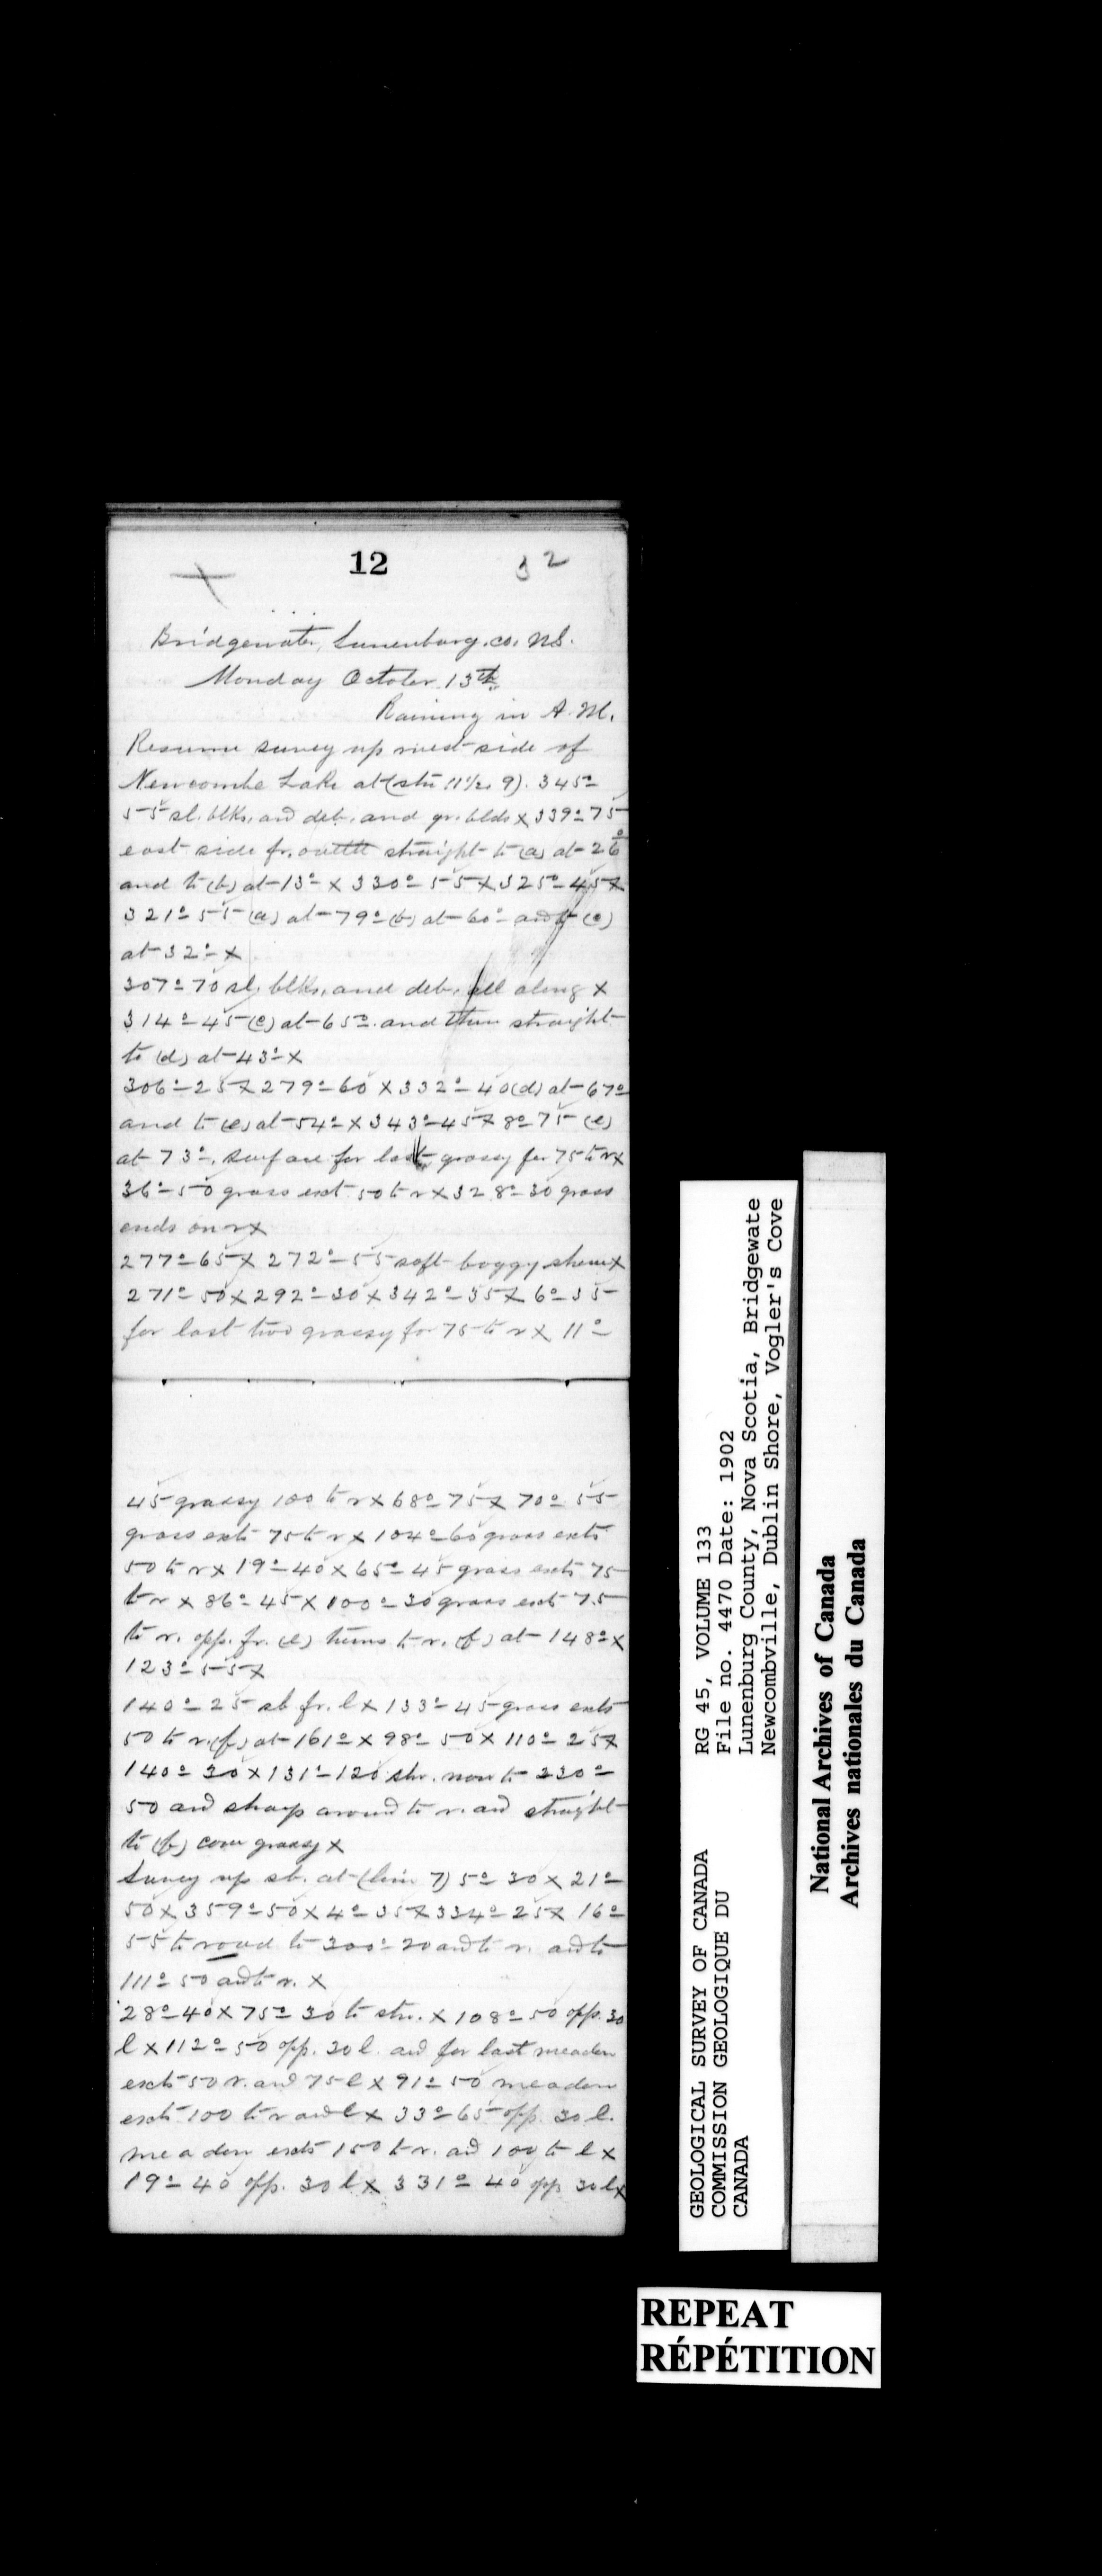 12
32
Bridgewater, Lunenburg. co. NS.
Monday October 13th
Raining in A. M.
Resume survey up west side of
Newcombe Lake at (stn 11½, 9). 345°
55 sl. blks. and deb. and gr. blds x 339° 75
east side fr. outlet straight to (a) at 26°
and to (b) at 13° x 330° 55 x 325° 45 x
321° 55 (a) at 79° (b) at 60° and to (c)
at 32° x
307° 70 sl. blks. and deb. all along x
314° 45 (c) at 65° and then straight
to (d) at 43° x
306° 25 x 279° 60 x 332° 40 (d) at 67°
and to (e) at 54° x 343° 45 x 8° 75 (e)
at 73°. surface for last grassy for 75 to r x
36° 50 grass ext. 50 to r x 328° 30 grass
ends on r x
277° 65 x 272° 55 soft boggy shore x
271° 50 x 292° 30 x 342° 35 x 6° 35
for last two grassy for 75 to r x 11°
45 grassy 100 to r x 68° 75 x 70° 55
grass exts 75 to r x 104° 60 grass exts
50 to r x 19° 40 x 65° 45 grass exts 75
to r x 86° 45 x 100° 30 grass exts 75
to r. opp. fr. (e) turns to r. (f) at 148° x
123° 55 x
140° 25 sb. fr. l x 133° 45 grass exts
50 to r. (f) at 161° x 98° 50 x 110° 25 x
140° 30 x 131° 120 shr. now to 230°
50 and sharp around to r. and straight
to (f) cove grassy x
Survey up sb. at (line 7) 5° 30 x 21°
50 x 359° 50 x 4° 35 x 334° 25 x 16°
55 to road to 300° 20 and to r. and to
111° 50 and to r. x
28° 40 x 75° 30 to stn. x 108° 50 opp. 30
l x 112° 50 opp. 30 l. and for last meadow
exts 50 r. and 75 l x 91° 50 meadow
exts 100 to r and l x 33° 65 opp. 30 l.
meadow exts 150 to r. and 100 to l x
19° 40 opp. 30 l x 331° 40 opp 30 l x
GEOLOGICAL SURVEY OF CANADA
COMMISSION GEOLOGIQUE DU
CANADA
RG 45, VOLUME 133
File no. 4470 Date: 1902
Lunenburg County, Nova Scotia, Bridgewate
Newcombville, Dublin Shore, Vogler's Cove
National Archives of Canada
Archives nationales du Canada
REPEAT
RÉPÉTITION